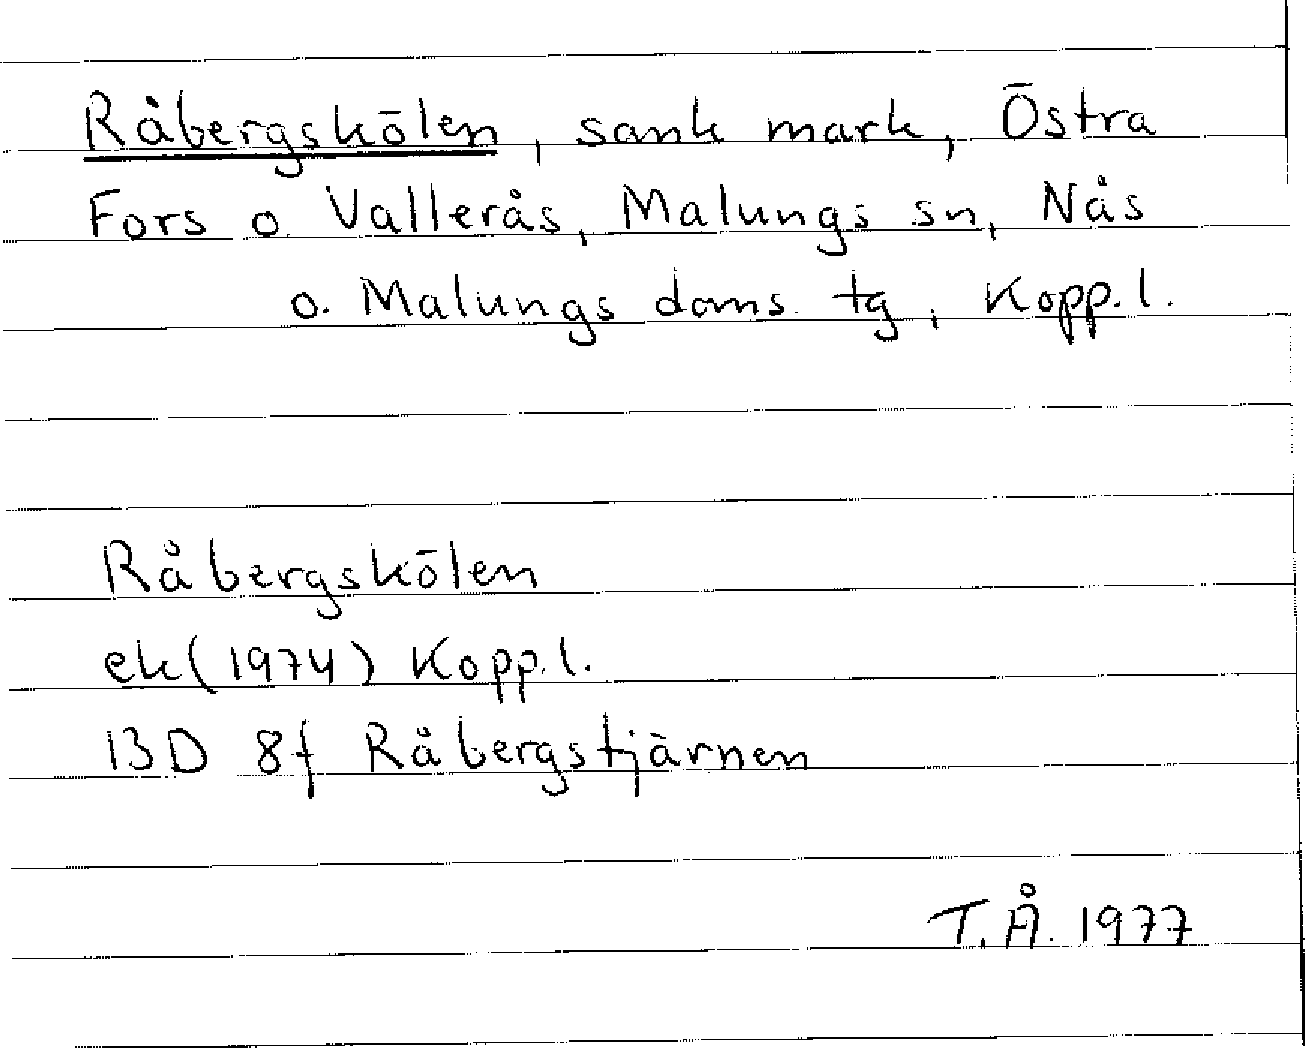 Råbergskölen, sank mark, Östra
Fors o Vallerås, Malungs sn, Nås
o. Malungs doms. tg, Kopp.l.
Råbergskölen
ek(1974) Kopp.l.
13D 8f Råbergstjärnen
T.Å. 1977